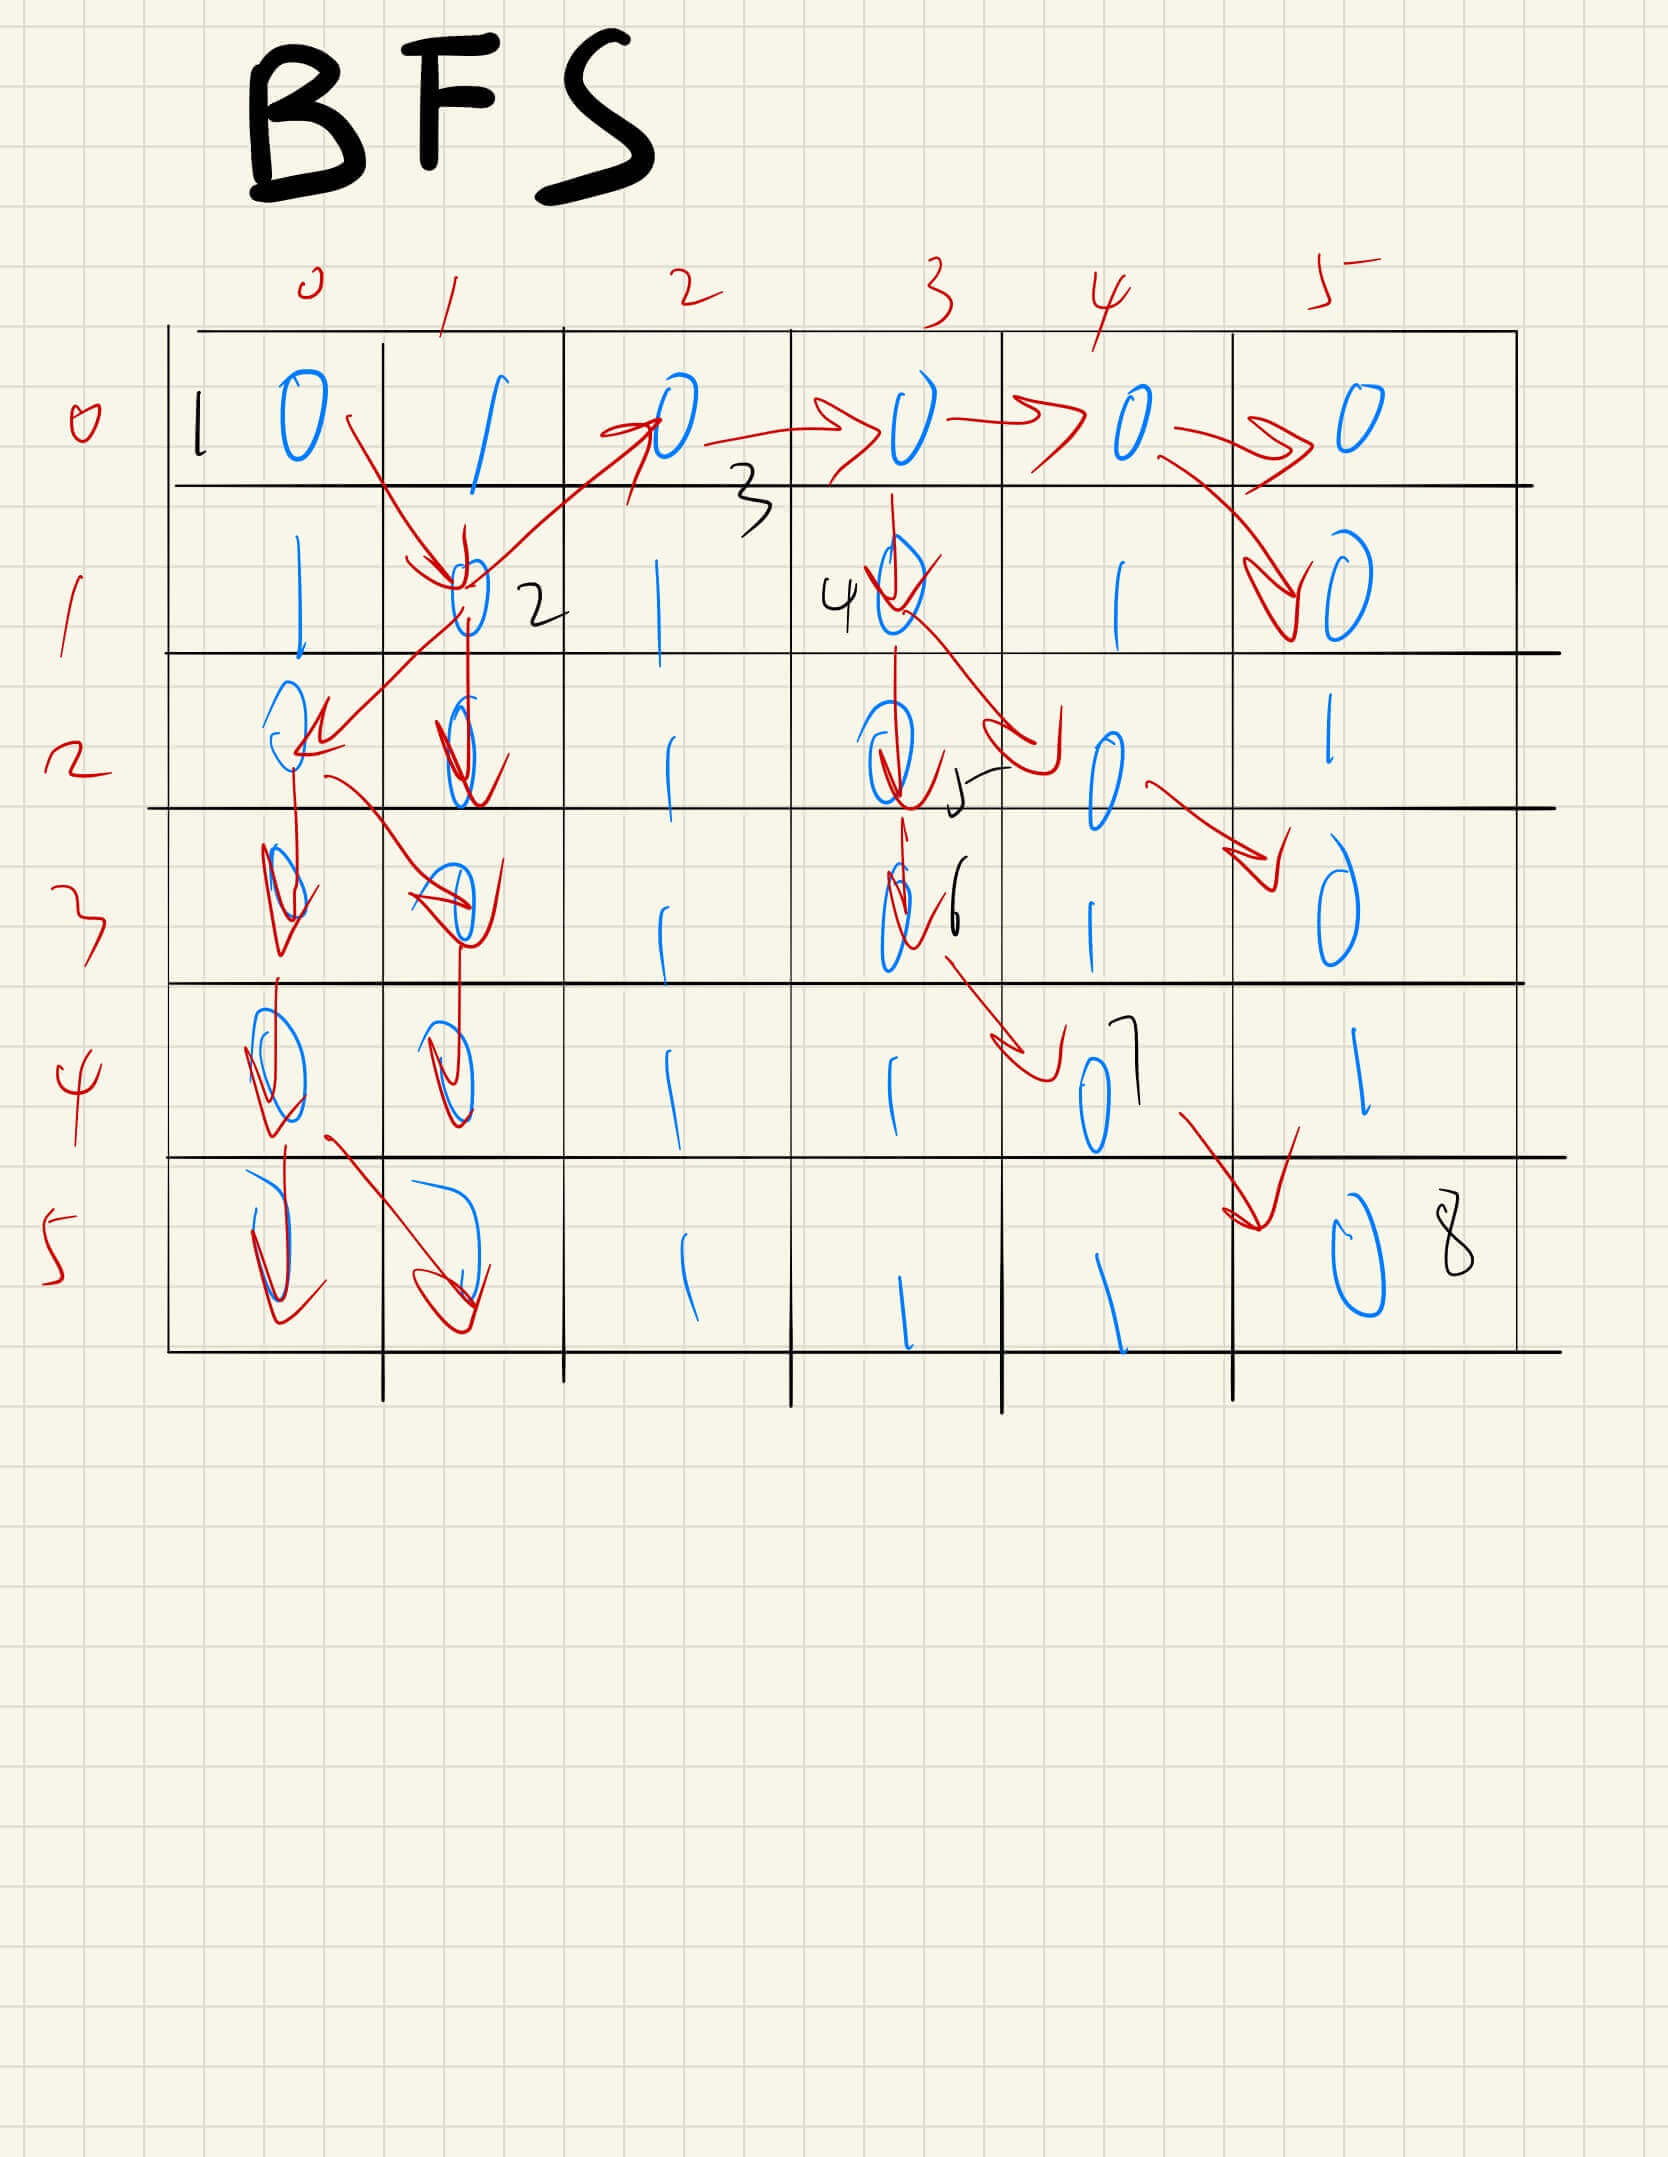 BFS
0 1 2 3 4 5
0 1 0 1 0 3 0 0 0
1 1 0 2 1 4 0 1 0
2 0 0 1 0 5 0 1
3 0 0 1 0 6 1 0
4 0 0 1 1 0 7 1
5 0 0 1 1 1 0 8